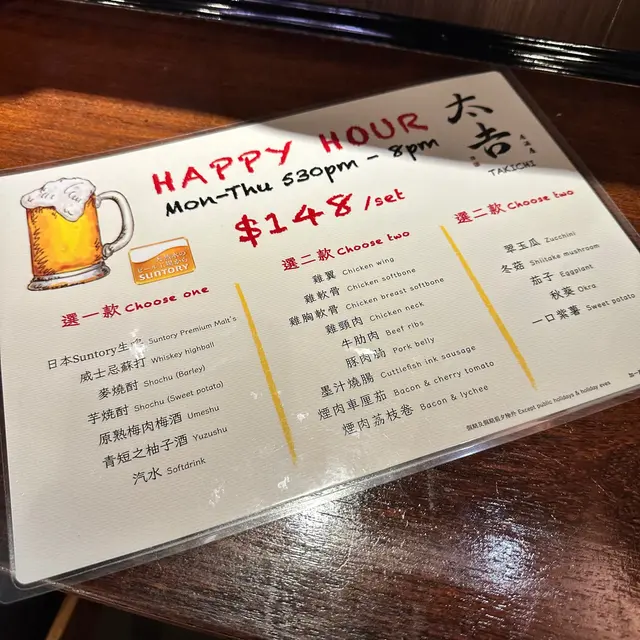 HAPPY HOUR
Mon-Thu 530pm - 8pm
$148/set
太吉
居酒屋
TAKICHI
SUNTORY
選一款 Choose one
日本Suntory生啤 Suntory Premium Malt's
威士忌蘇打 Whiskey highball
麥燒酎 Shochu (Barley)
芋燒酎 Shochu (Sweet potato)
原熟梅肉梅酒 Umeshu
青短之柚子酒 Yuzushu
汽水 Softdrink
選二款 Choose two
雞翼 Chicken wing
雞軟骨 Chicken softbone
雞胸軟骨 Chicken breast softbone
雞頸肉 Chicken neck
牛肋肉 Beef ribs
豚肉 Pork belly
墨汁燒腸 Cuttlefish ink sausage
煙肉車厘茄 Bacon & cherry tomato
煙肉荔枝卷 Bacon & lychee
選二款 Choose two
翠玉瓜 Zucchini
冬菇 Shiitake mushroom
茄子 Eggplant
秋葵 Okra
一口紫薯 Sweet potato
假期及假期前夕除外 Except public holidays & holiday eves
加一